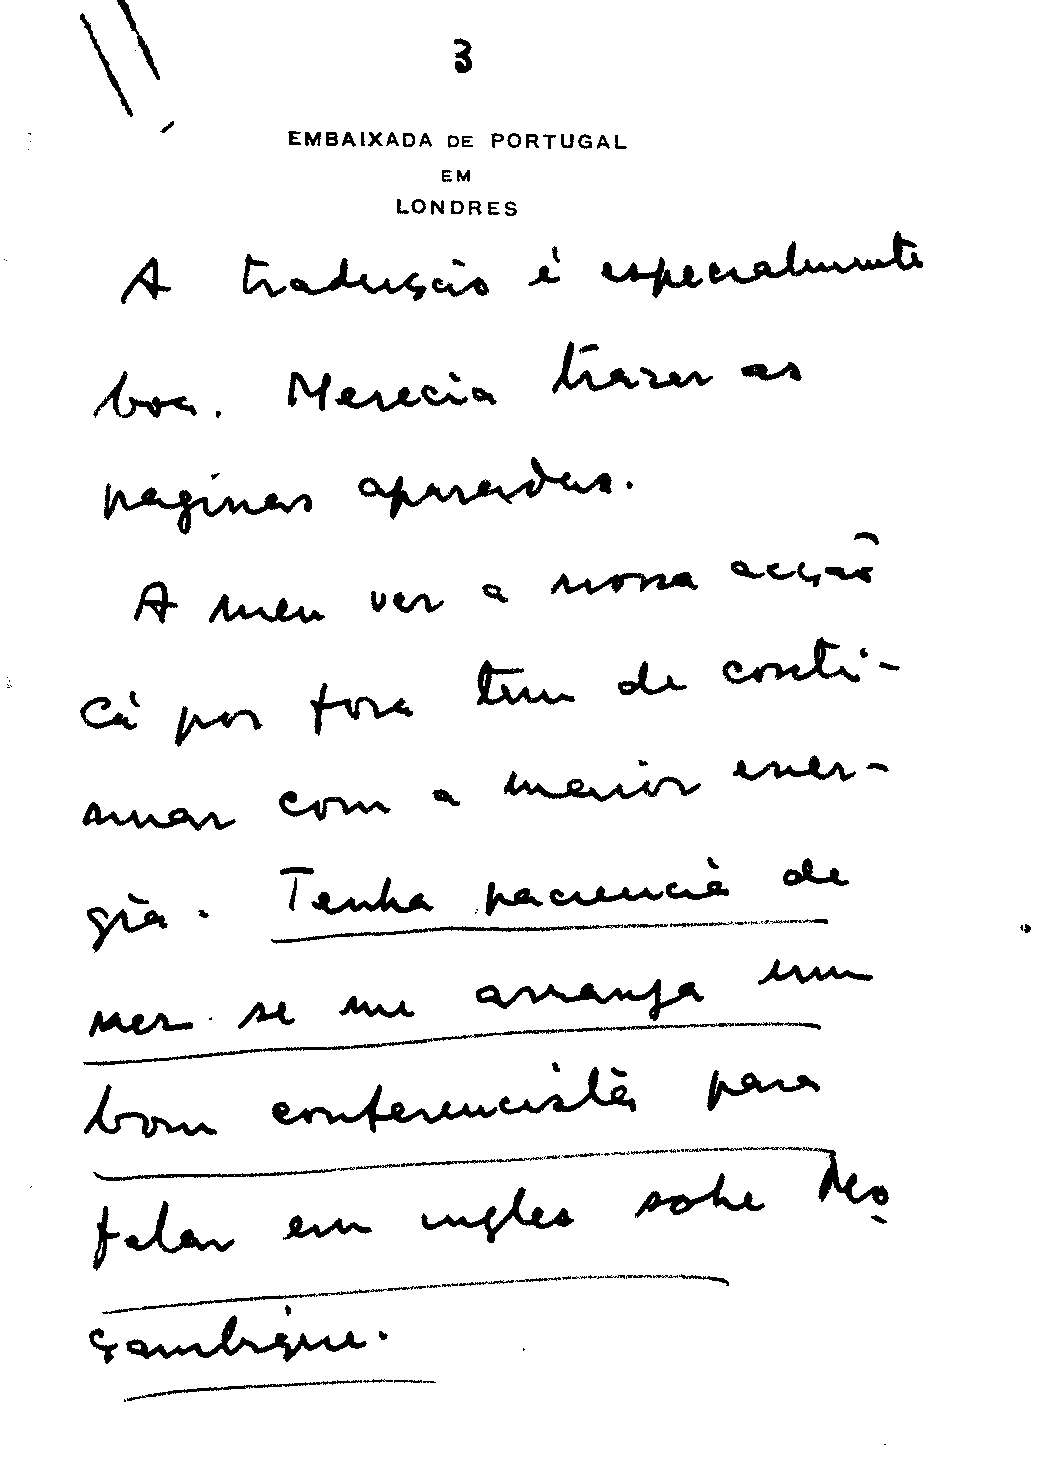 3
EMBAIXADA DE PORTUGAL
EM
LONDRES
A tradução é especialmente
boa. Merecia trazer as
paginas aparadas.
A meu ver a nossa acção
cá por fora tem de conti-
nuar com a maior ener-
gia. Tenha paciencia de
ver se me arranja um
bom conferencista para
falar em ingles sobre Mo-
çambique.